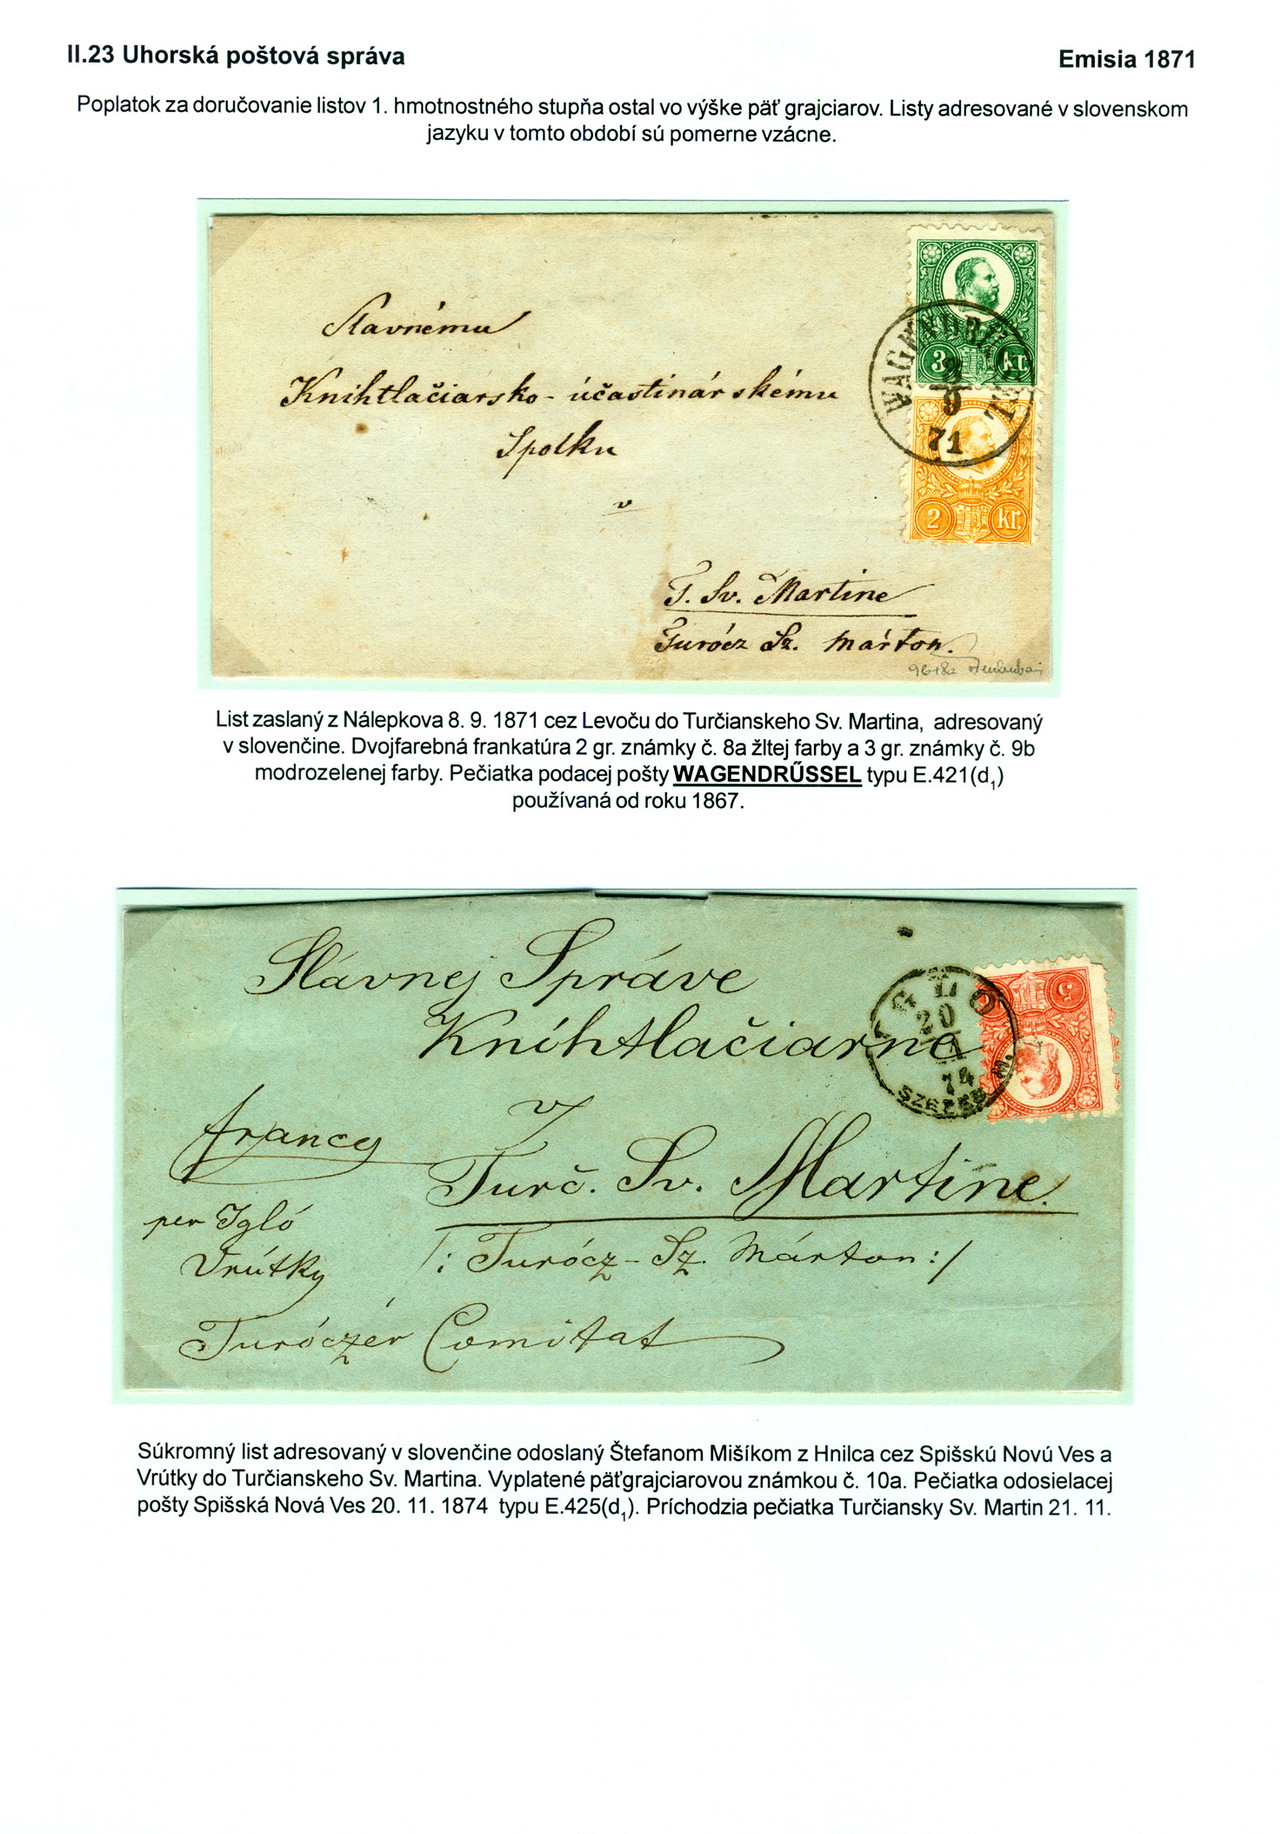 II.23 Uhorská poštová správa
Emisia 1871
Poplatok za doručovanie listov 1. hmotnostného stupňa ostal vo výške päť grajciarov. Listy adresované v slovenskom
jazyku v tomto období sú pomerne vzácne.
Slavnému
Knihtlačiarsko-účastinárskému
Spolku
v
T. Sv. Martine
Turócz Sz. Márton.
3 kr
2 kr.
9
71
List zaslaný z Nálepkova 8. 9. 1871 cez Levoču do Turčianskeho Sv. Martina, adresovaný
v slovenčine. Dvojfarebná frankatúra 2 gr. známky č. 8a žltej farby a 3 gr. známky č. 9b
modrozelenej farby. Pečiatka podacej pošty WAGENDRŰSSEL typu E.421(d₁)
používaná od roku 1867.
Slávnej Správe
Kníhtlačiarne
v
Turč. Sv. Martine.
/: Turócz-Sz. Márton:/
franco
per Igló
Vrútky
Turóczer Comitat
IGLÓ
20
11
74
SZEPES M.
5
Súkromný list adresovaný v slovenčine odoslaný Štefanom Mišíkom z Hnilca cez Spišskú Novú Ves a
Vrútky do Turčianskeho Sv. Martina. Vyplatené päťgrajciarovou známkou č. 10a. Pečiatka odosielacej
pošty Spišská Nová Ves 20. 11. 1874 typu E.425(d₁). Príchodzia pečiatka Turčiansky Sv. Martin 21. 11.